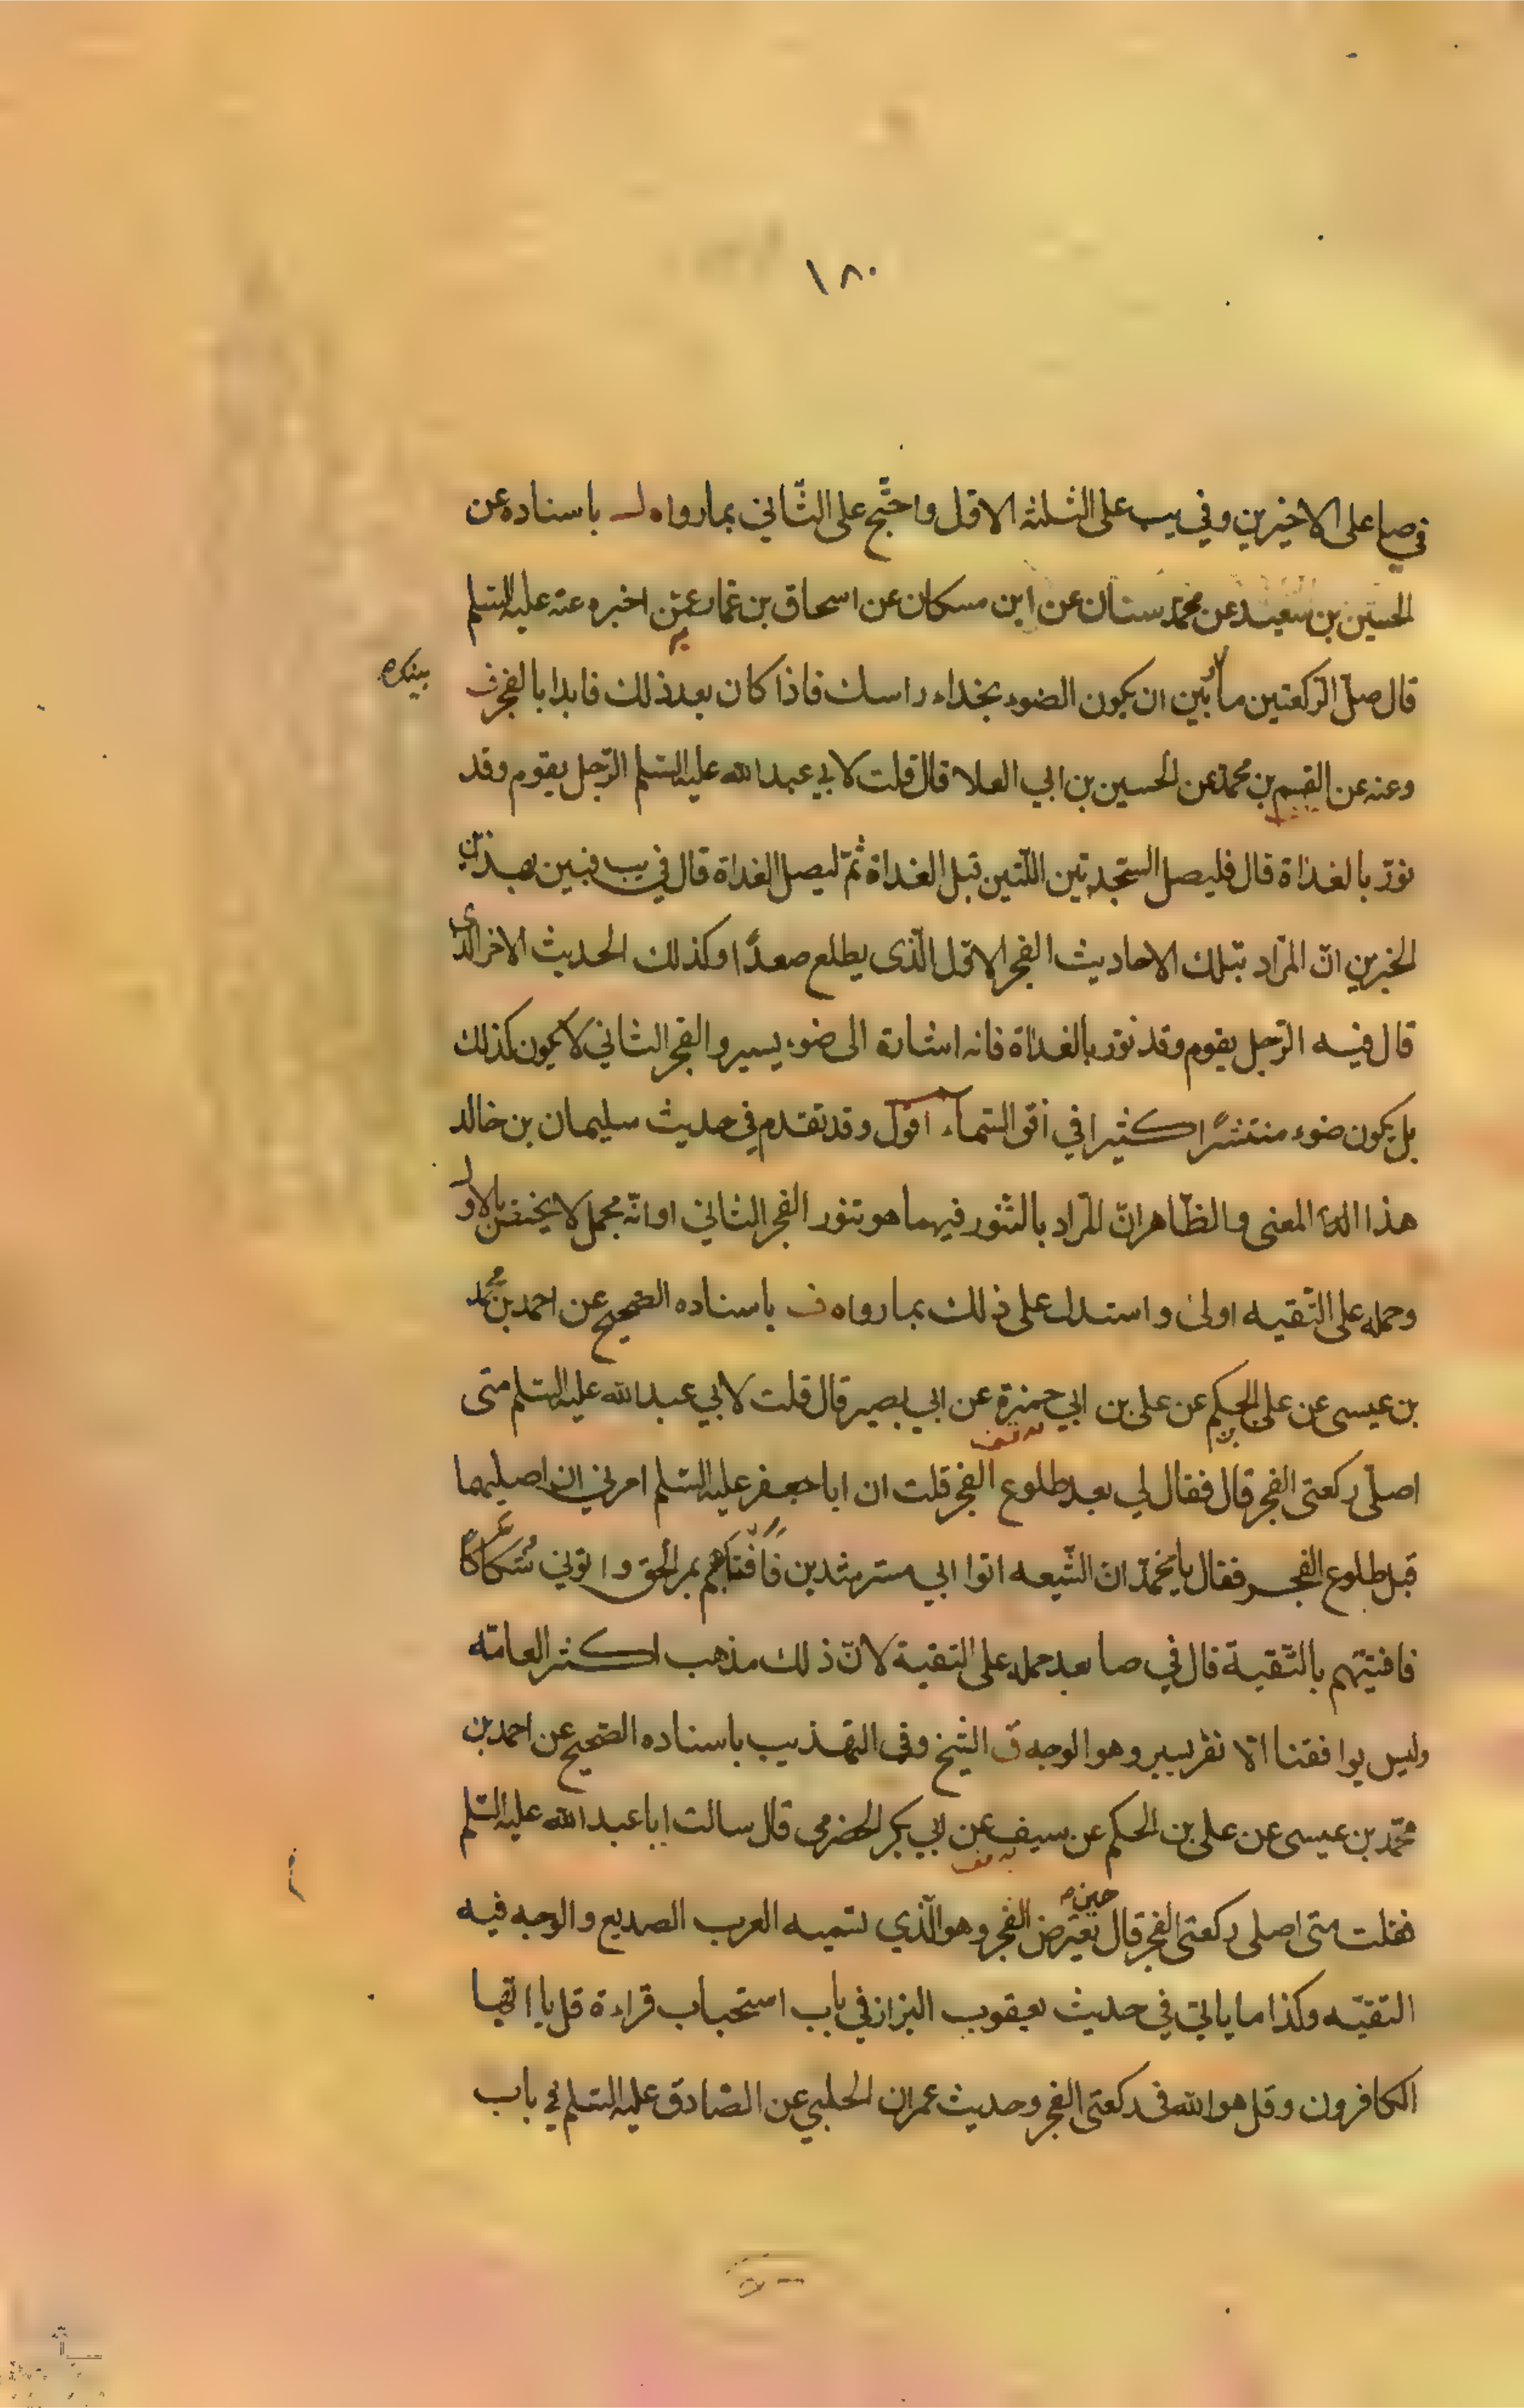 ١٨٠
في صا على الاخيرين وفي يب على الثلثه الاول واحتج على الثاني بما رواه لـ باسناده عن
الحسين بن سعيد عن محمد سنان عن ابن مسكان عن اسحاق بن عمار عمن اخبره عنه عليه السلم
قال صل الركعتين ما بين ان يكون الضوء بحذاء راسك فاذا كان بعد ذلك فابدا بالفجر ف
بينك ص
وعنه عن القسم بن محمد عن الحسين بن ابي العلا قال قلت لابي عبد الله عليه السلم الرجل يقوم وقد
نور بالغداة قال فليصل السجدتين اللتين قبل الغداة ثم ليصل الغداة قال في يب فبين بهذين
الخبرين ان المراد بتلك الاحاديث الفجر الاول الذي يطلع صعدًا وكذلك الحديث الاخر الذي
قال فيه الرجل يقوم وقد نور بالغداة فانه اشارة الى ضوء يسير والفجر الثاني لا يكون كذلك
بل يكون ضوء منتشرًا كثيرا في افق السماء اقول وقد تقدم في حديث سليمان بن خالد
هذا المعنى والظاهر ان المراد بالتنور فيهما هو تنور الفجر الثاني او انه مجمل لا يختص بالاول
وحمله على التقيه اولى واستدل على ذلك بما رواه ف باسناده الصحيح عن احمد بن محمد
بن عيسى عن على الحكم عن على بن ابي حمزة عن ابي بصير قال قلت لابي عبد الله عليه السلم متى
اصلى ركعتى الفجر قال فقال لي بعد طلوع الفجر قلت ان ابا جعفر عليه السلم امرني ان اصليهما
قبل طلوع الفجر فقال يا محمد ان الشيعه اتوا ابي مسترشدين فافتاهم بمر الحق واتوني شكاكًا
فافتيتهم بالتقية قال في صا بعد حمله على التقية لان ذلك مذهب اكثر العامة
وليس يوافقنا الا نفر يسير وهو الوجه ق الشيخ وفى التهذيب باسناده الصحيح عن احمد بن
محمد بن عيسى عن على بن الحكم عن سيف عن ابي بكر الحضرمى قال سالت ابا عبد الله عليه السلم
فقلت متى اصلى ركعتى الفجر قال حين يعترض الفجر وهو الذي تسميه العرب الصديع والوجه فيه
التقيه وكذا ما ياتي في حديث يعقوب البزاز في باب استحباب قراءة قل يا ايها
الكافرون وقل هو الله فى ركعتى الفجر وحديث عمران الحلبي عن الصادق عليه السلم في باب